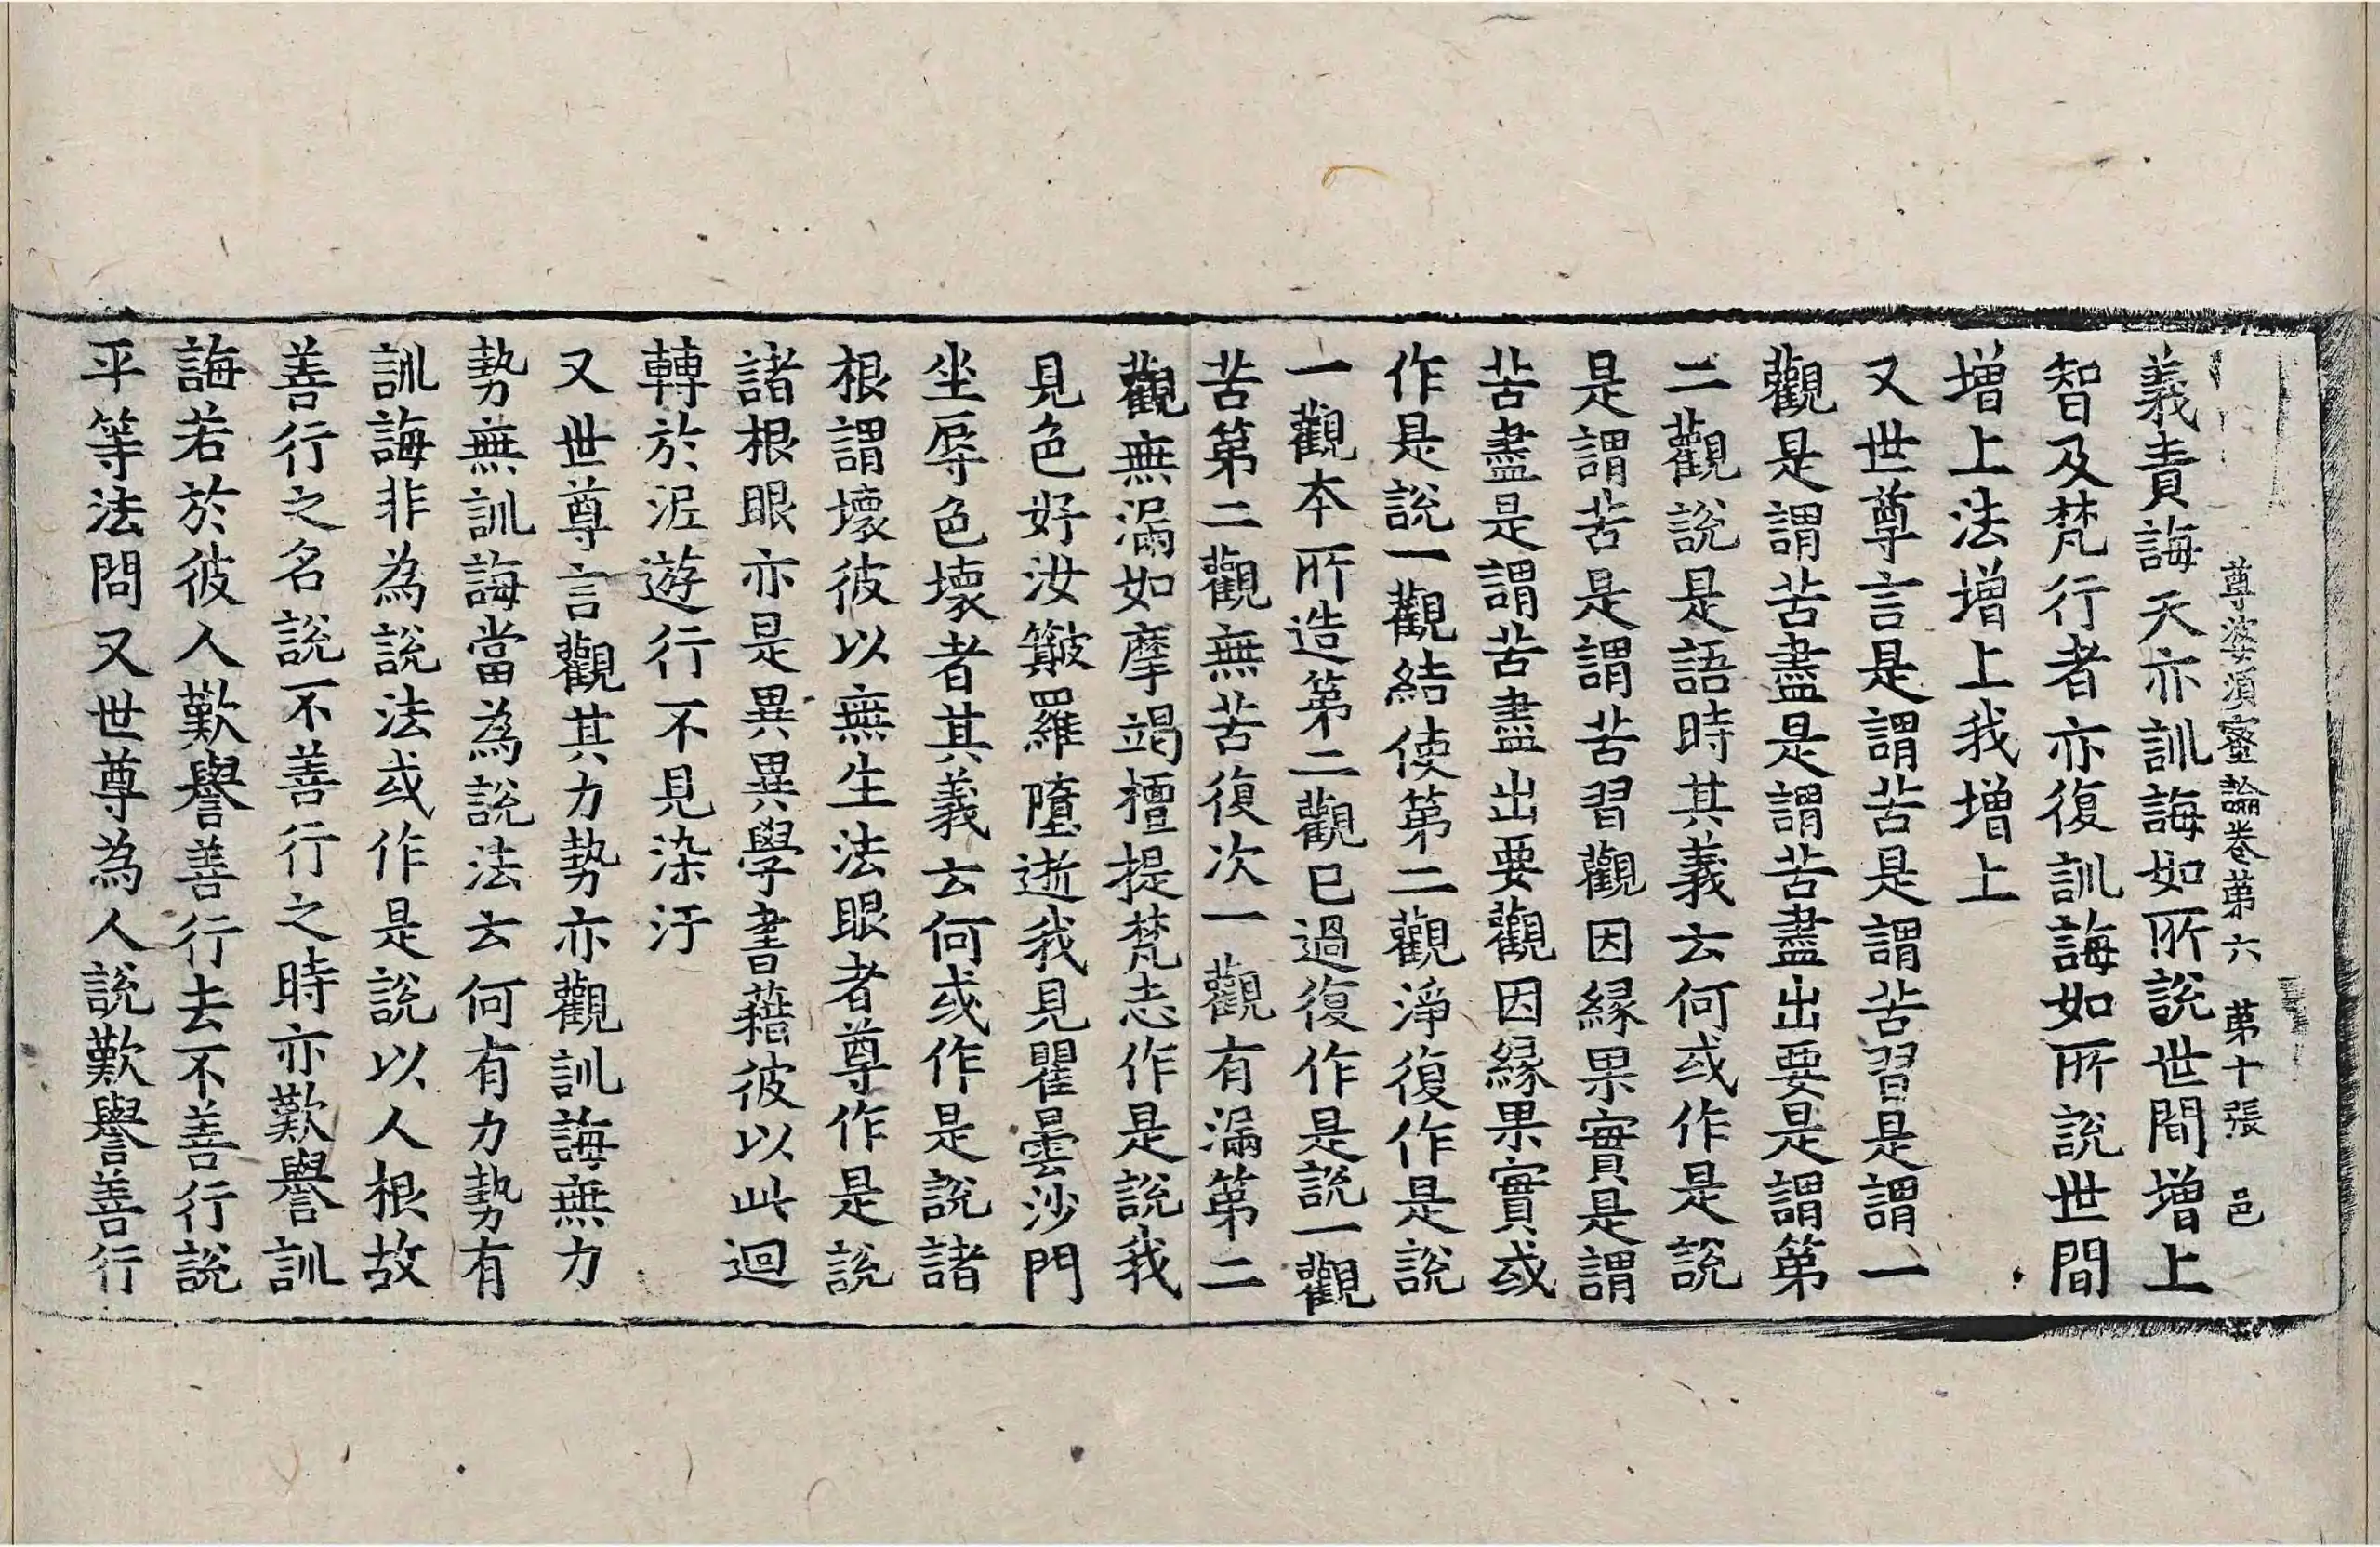 尊婆須蜜論卷苐六 苐十張 邑
義責誨天亦訓誨如所說世間增上
智及梵行者亦復訓誨如所說世間
增上法增上我增上
又世尊言是謂苦是謂苦習是謂一
觀是謂苦盡是謂苦盡出要是謂第
二觀說是語時其義云何或作是說
是謂苦是謂苦習觀因緣果實是謂
苦盡是謂苦盡出要觀因緣果實或
作是說一觀結使第二觀淨復作是說
一觀本所造第二觀已過復作是說一觀
苦第二觀無苦復次一觀有漏第二
觀無漏如摩竭檀提梵志作是說我
見色好汝簸羅墮逝我見瞿曇沙門
坐辱色壞者其義云何或作是說諸
根謂壞彼以無生法眼者尊作是說
諸根眼亦是異異學書藉彼以此迴
轉於泥遊行不見染汙
又世尊言觀其力勢亦觀訓誨無力
勢無訓誨當為說法云何有力勢有
訓誨非為說法或作是說以人根故
善行之名說不善行之時亦歎譽訓
誨若於彼人歎譽善行去不善行說
平等法問又世尊為人說歎譽善行